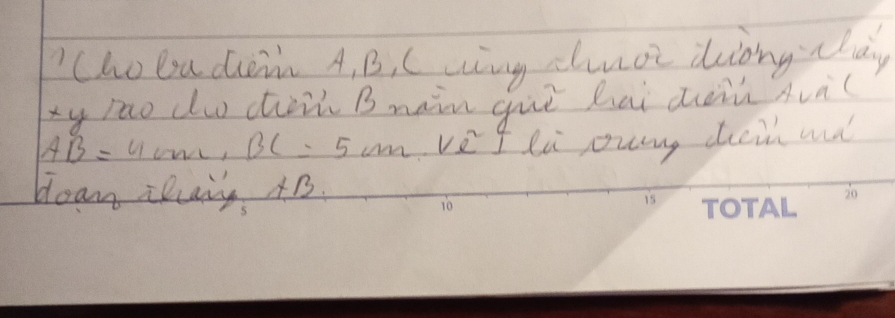 Cho ba điểm A, B, C cùng thuộc đường thẳng
xy sao cho điểm B nằm giữa hai điểm A và C
AB = 4 cm, BC = 5 cm. Vẽ I là trung điểm
đoạn thẳng AB.
5 10 15 TOTAL 20